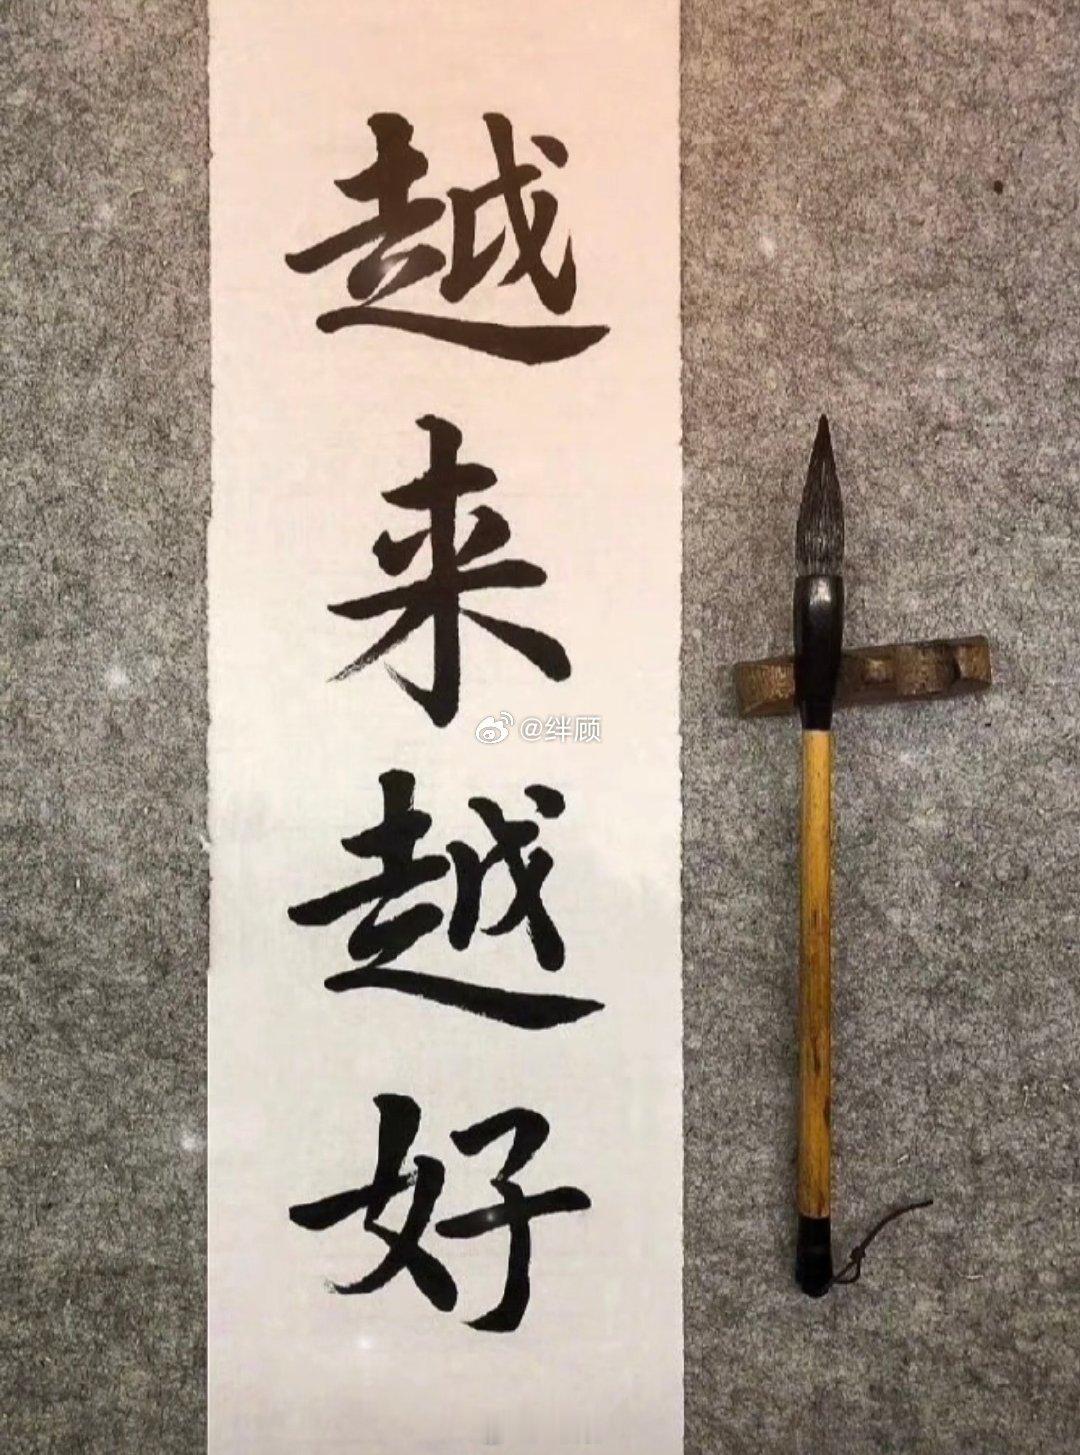 越来越好
@绊顾